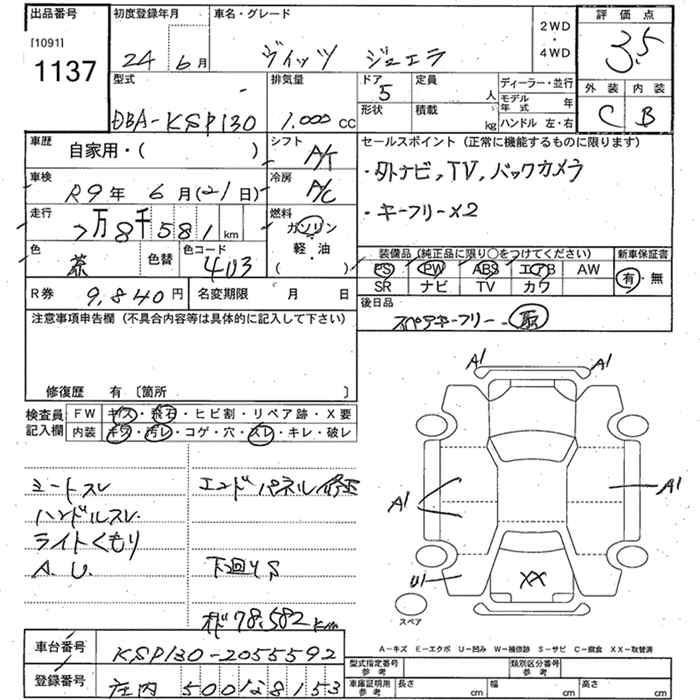 出品番号 初度登録年月 車名・グレード 2WD ・ 4WD 評価点
[1091]
1137
24 年 6 月 ヴィッツ ジュエラ 3.5
型式 排気量 ドア 定員 ディーラー・並行 外装 内装
DBA-KSP130 1.000 cc 5 人 モデル年式 年 C B
形状 積載 kg ハンドル 左・右
車歴 自家用・( ) シフト A/T セールスポイント(正常に機能するものに限ります)
・外ナビ,TV,バックカメラ
車検 R9年 6月(21日) 冷房 A/C
・キーフリー×2
走行 7万8千581 km 燃料 ガソリン
軽・油
( )
色 茶 色替 色コード 4U3
装備品(純正品に限り〇をつけてください) 新車保証書
PS PW ABS エアB AW 有・無
SR ナビ TV カワ
R券 9,840円 名変期限 月 日
後日品
スペアキーフリー
注意事項申告欄(不具合内容等は具体的に記入して下さい)
修復歴 有 〔箇所 〕
検査員記入欄 FW キズ・飛石・ヒビ割・リペア跡・X要
内装 キズ・汚レ・コゲ・穴・スレ・キレ・破レ
シートスレ エンドパネル修正
ハンドルスレ
ライトくもり
A.U. 下回りS
オド78,582km
A1 A1
A1 A1
U1 XX
スペア
A-キズ E-エクボ U-凹み W-補修跡 S-サビ C-腐食 XX-取替済
車台番号 KSP130-2055592
登録番号 庄内 500 128153
型式指定番号 参考 類別区分番号 参考
車庫証明用 参考 長さ cm 幅 cm 高さ cm